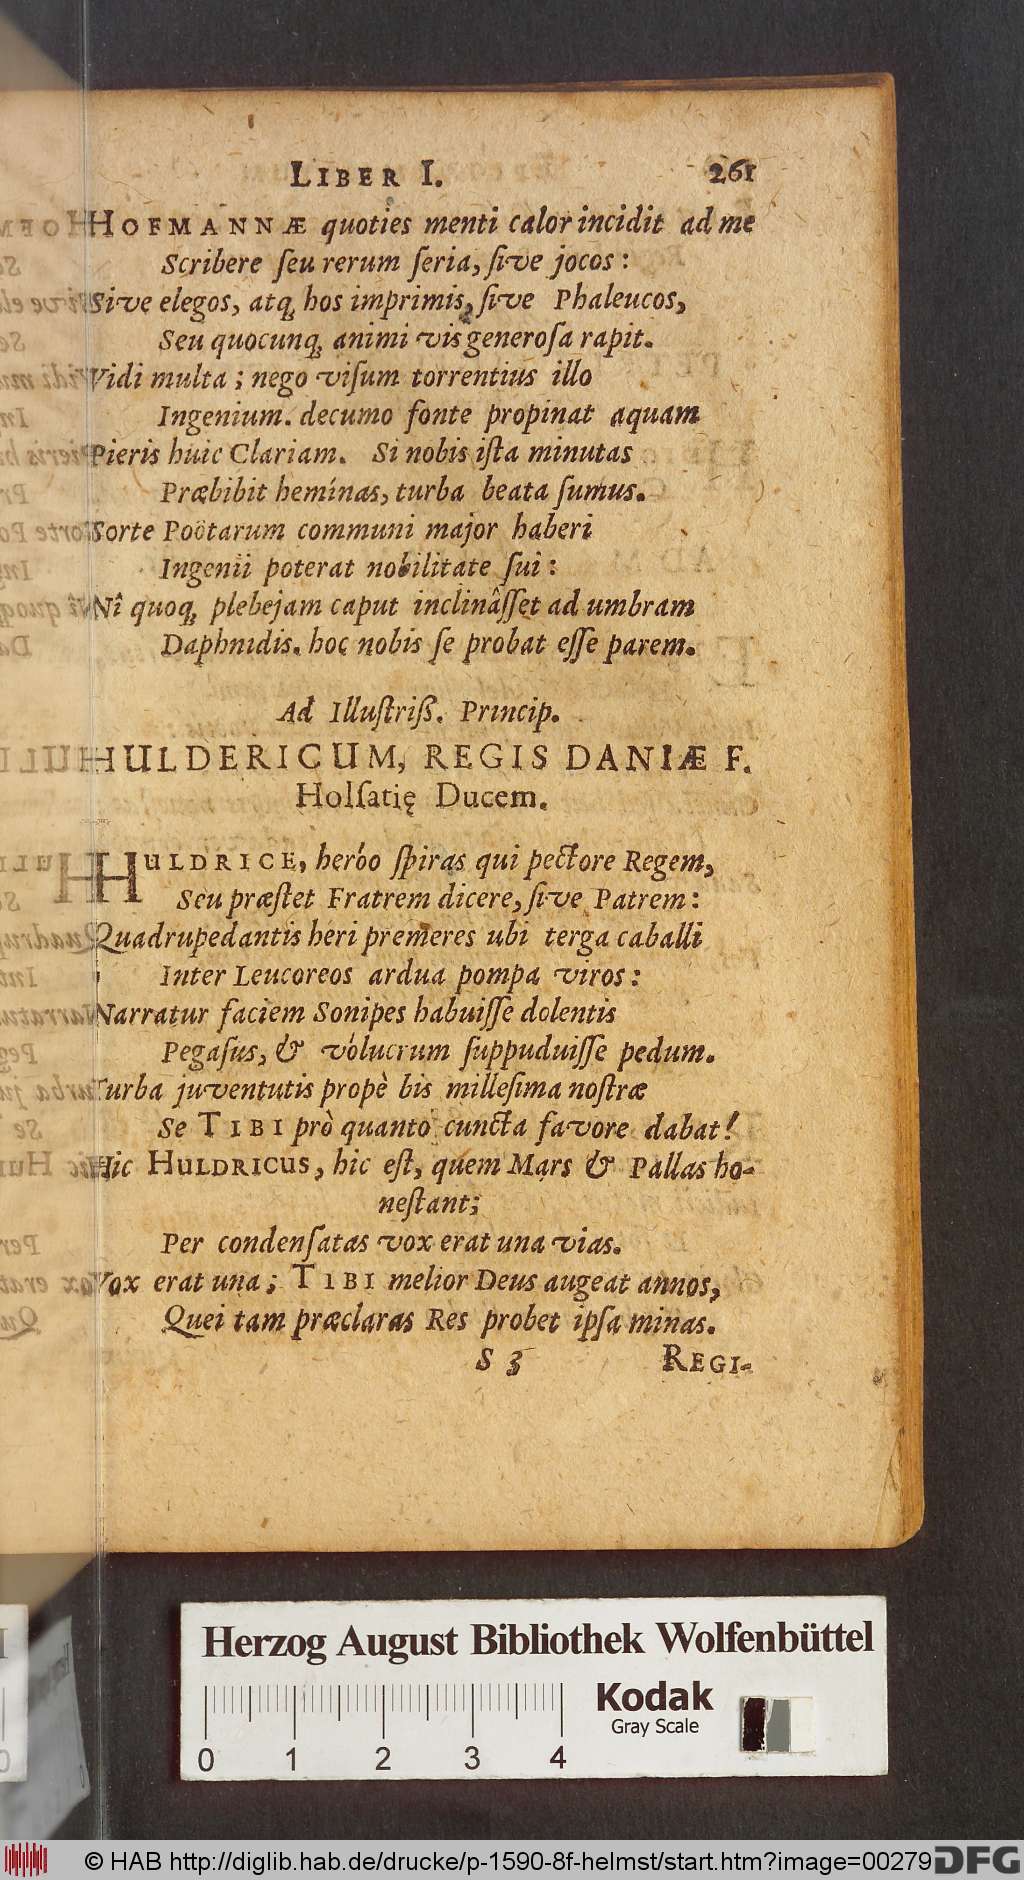 LIBER I. 261
HOFMANNÆ quoties menti calor incidit ad me
Scribere ſeu rerum ſeria, ſive jocos :
Sive elegos, atq; hos imprimis, ſive Phaleucos,
Seu quocunq; animi vis generoſa rapit.
Vidi multa ; nego viſum torrentius illo
Ingenium. decumo fonte propinat aquam
Pieris huic Clariam. Si nobis iſta minutas
Præbibit hemínas, turba beata ſumus.
Sorte Poëtarum communi major haberi
Ingenii poterat nobilitate ſui :
Nî quoq; plebejam caput inclinâſſet ad umbram
Daphnidis. hoc nobis ſe probat eſſe parem.
Ad Illuſtriſſ. Princip.
HULDERICUM, REGIS DANIÆ F.
Holſatię Ducem.
HULDRICE, heróo ſpiras qui pectore Regem,
Seu præſtet Fratrem dicere, ſive Patrem :
Quadrupedantis heri premeres ubi terga caballi
Inter Leucoreos ardua pompa viros :
Narratur faciem Sonipes habuiſſe dolentis
Pegaſus, & vólucrum ſuppuduiſſe pedum.
Turba juventutis propè bis milleſima noſtræ
Se TIBI prò quanto cuncta favore dabat !
Hic HULDRICUS, hic eſt, quem Mars & Pallas ho-
neſtant ;
Per condenſatas vox erat una vias.
Vox erat una ; TIBI melior Deus augeat annos,
Quei tam præclaras Res probet ipſa minas.
S 3 REGI-
Herzog August Bibliothek Wolfenbüttel
Kodak
Gray Scale
0 1 2 3 4
© HAB http://diglib.hab.de/drucke/p-1590-8f-helmst/start.htm?image=00279 DFG